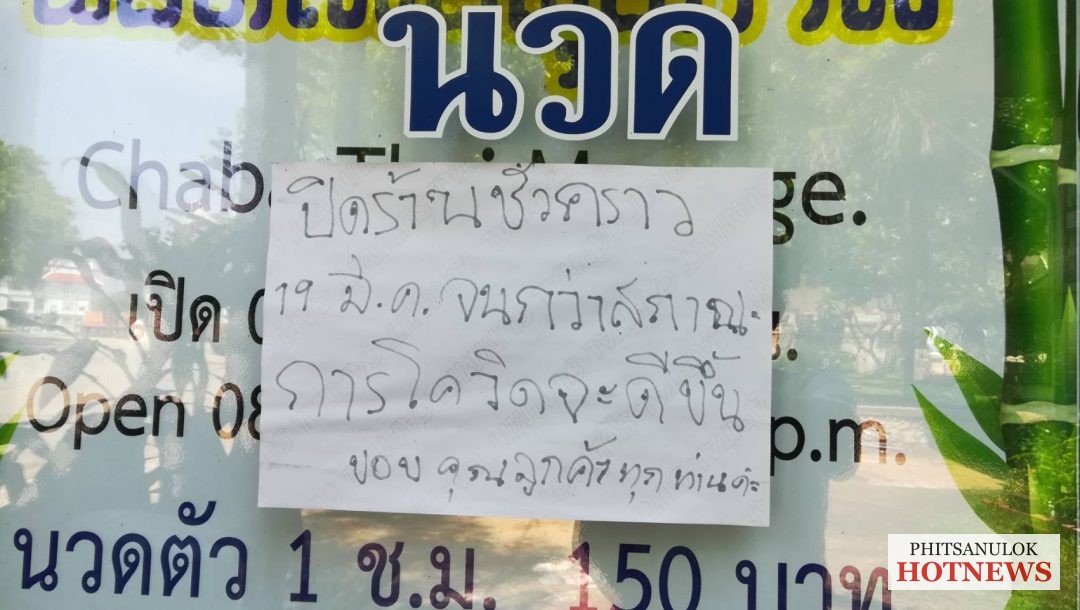 นวด
Chaba Thai M ge.
ปิดร้านชั่วคราว
19 มี.ค. จนกว่าสภาณะ
การโควิดจะดีขึ้น
ขอบคุณลูกค้าทุกท่านค่ะ
เปิด 0 น.
Open 08 p.m.
นวดตัว 1 ช.ม. 150 บาท
PHITSANULOK
HOTNEWS